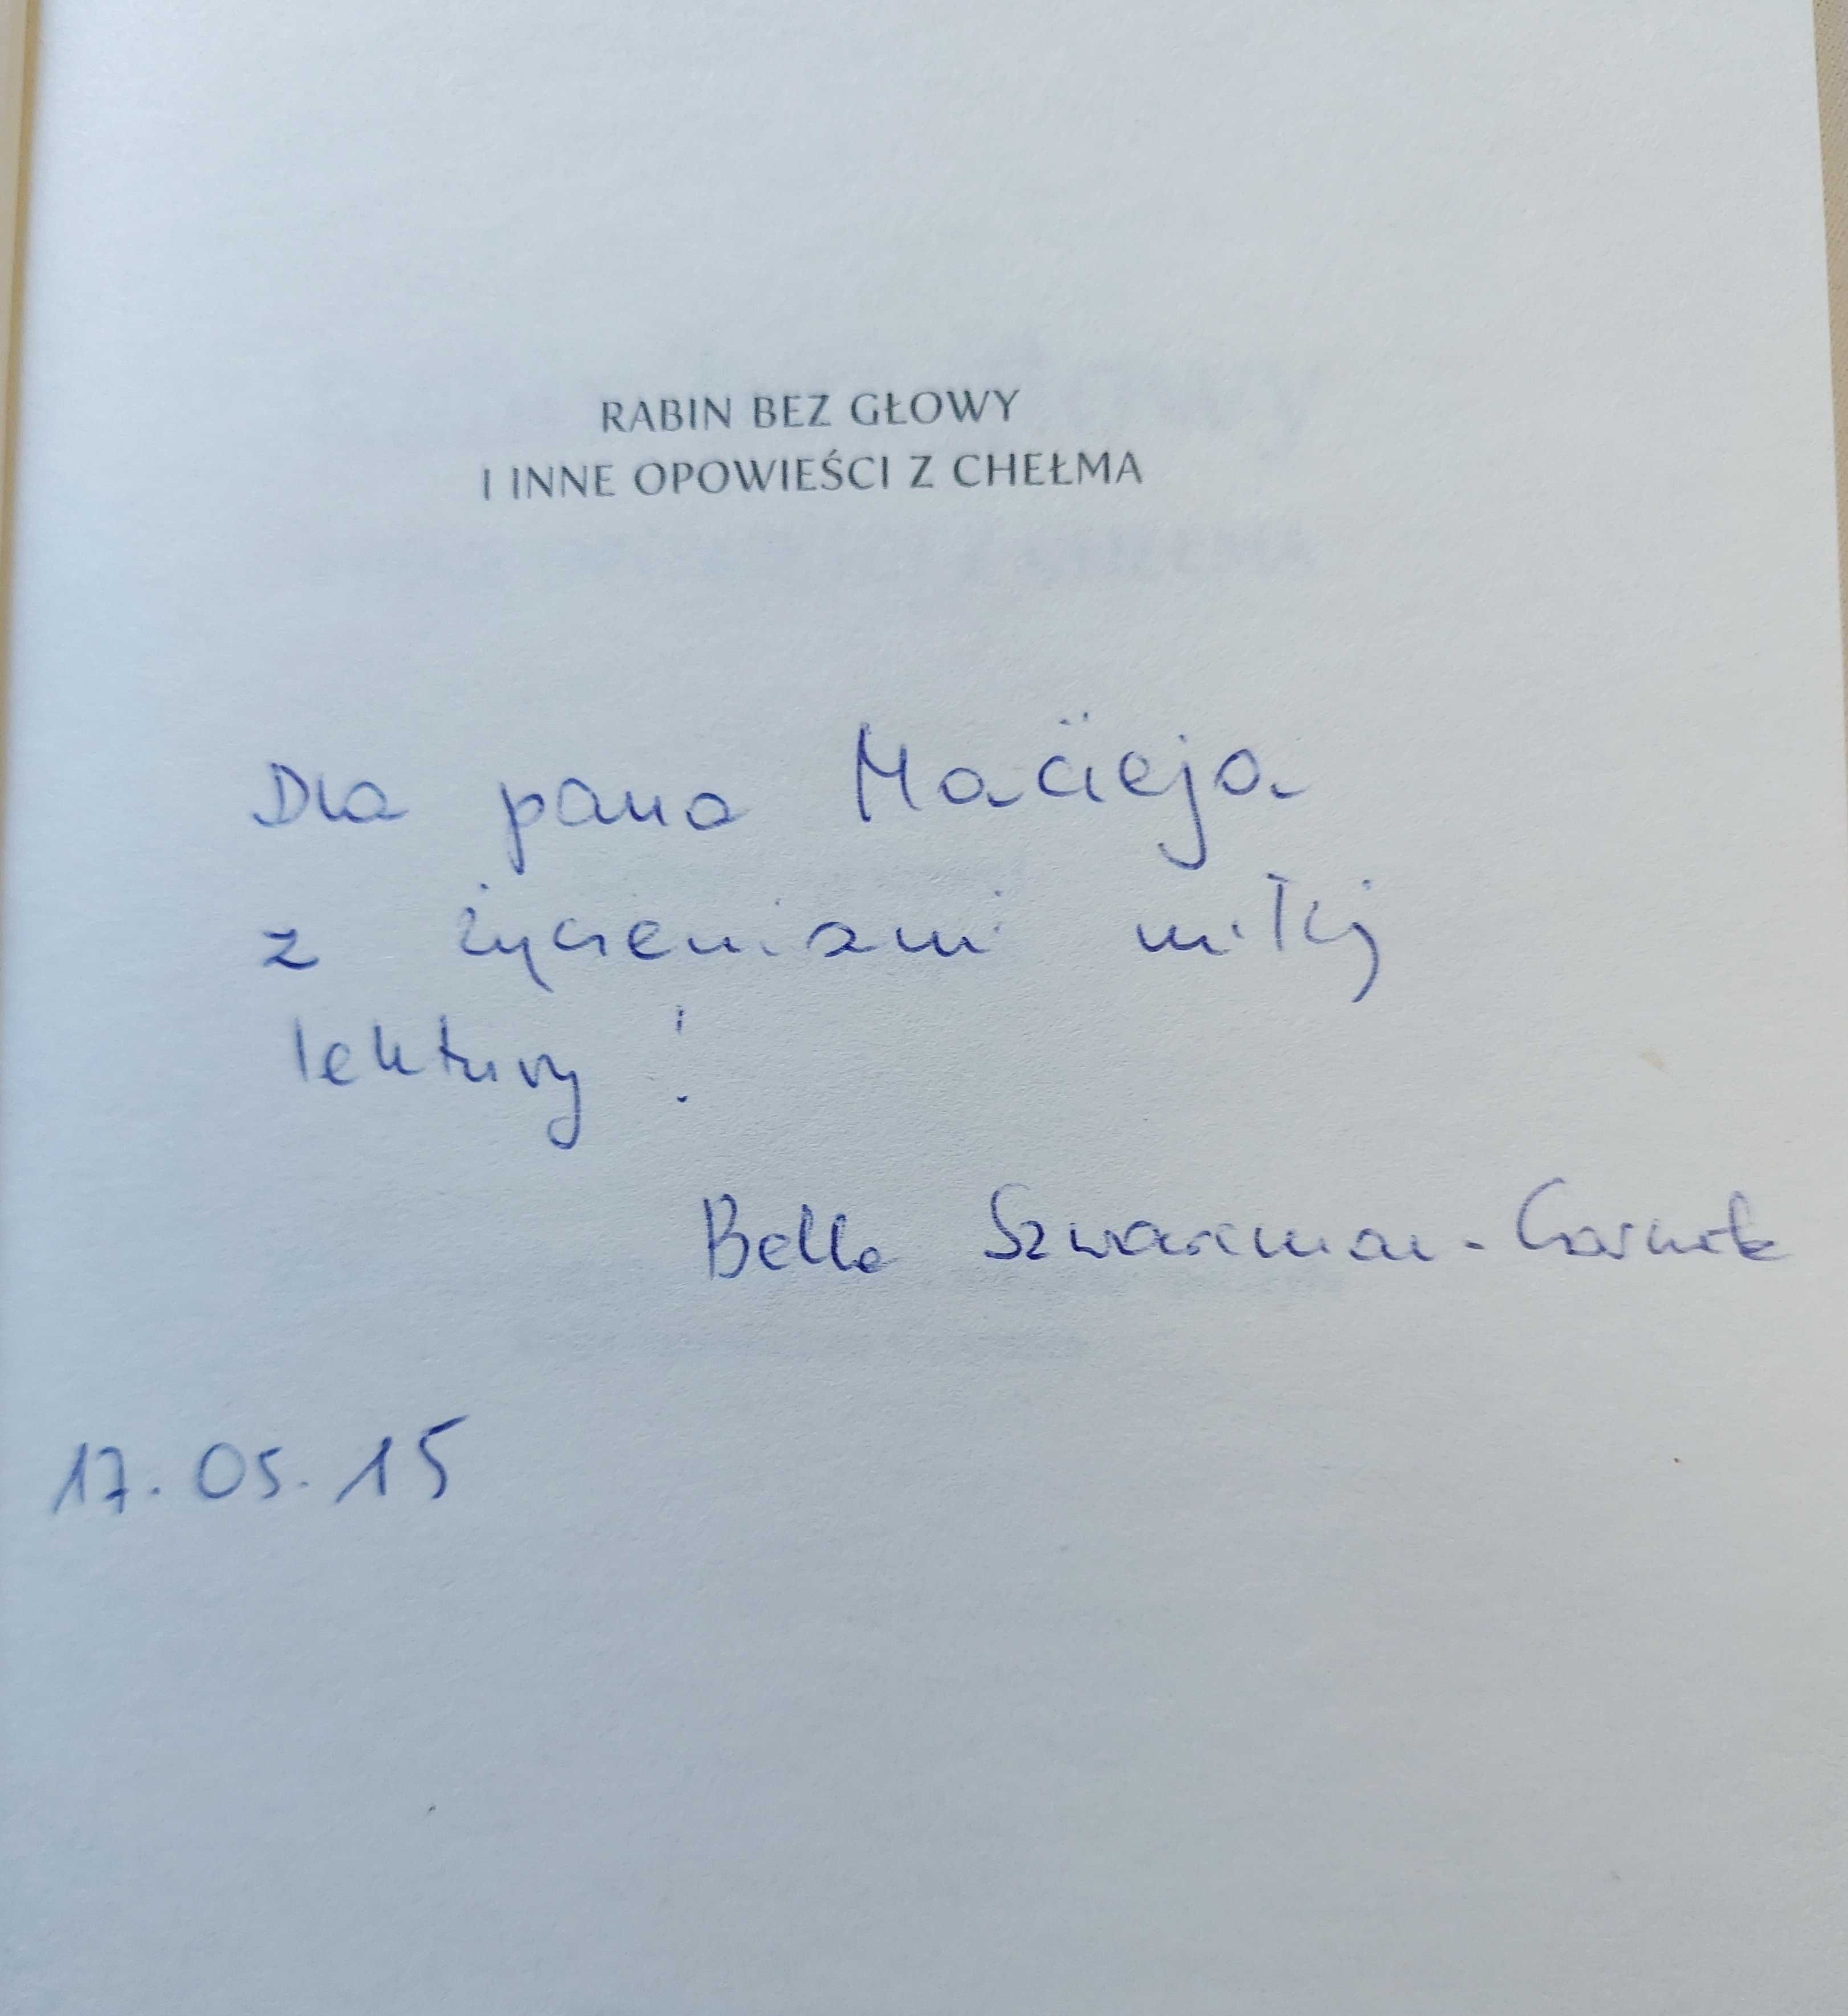 RABIN BEZ GŁOWY
I INNE OPOWIEŚCI Z CHEŁMA
Dla pana Macieja
z życzeniami miłej
lektury!
Bella Szwarcman-Czarnota
17.05.15